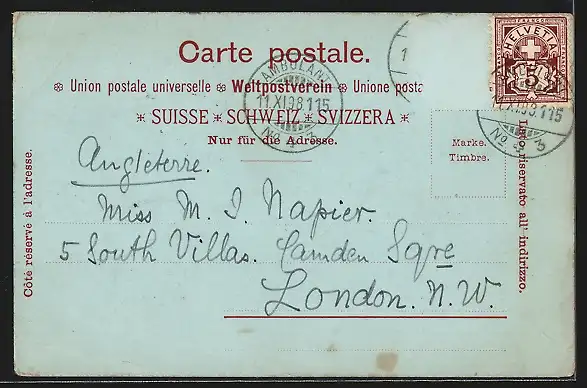 Carte postale.
Union postale universelle Weltpostverein Unione posta
SUISSE SCHWEIZ SVIZZERA
Nur für die Adresse.
HELVETIA
5
AMBULANT
11.XI.98.115
No 4 3
11.XI.98.115
No 4 3
1
Marke.
Timbre.
Côté réservé à l'adresse.
riservato all' indirizzo.
Angleterre.
Miss M. J. Napier.
5 South Villas. Camden Sqre
London. N.W.